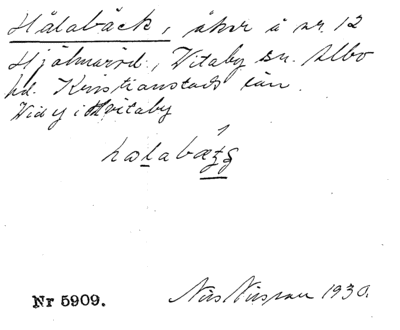 Hålabäck, åker å nr. 12
Hjälmaröd, Vitaby sn. Albo
hd. Kristianstads län.
Vid y i Hvitaby
Nr 5909. Nils Nilsson 1930.